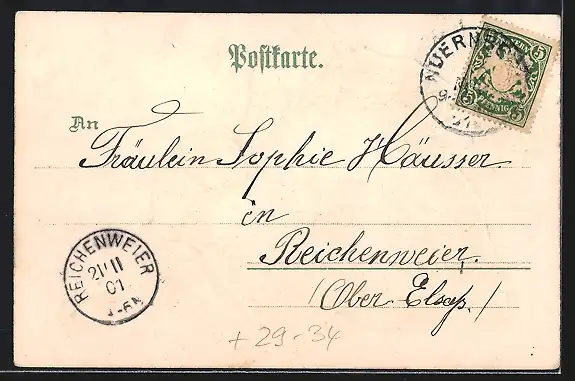 Postkarte.
NUERNBERG
5 5
BAYERN
5 PFENNIG 5
An
Fräulein Sophie Häusser
in
Reichenweier.
(Ober Elsaß.)
REICHENWEIER
21 11
01
+29-34